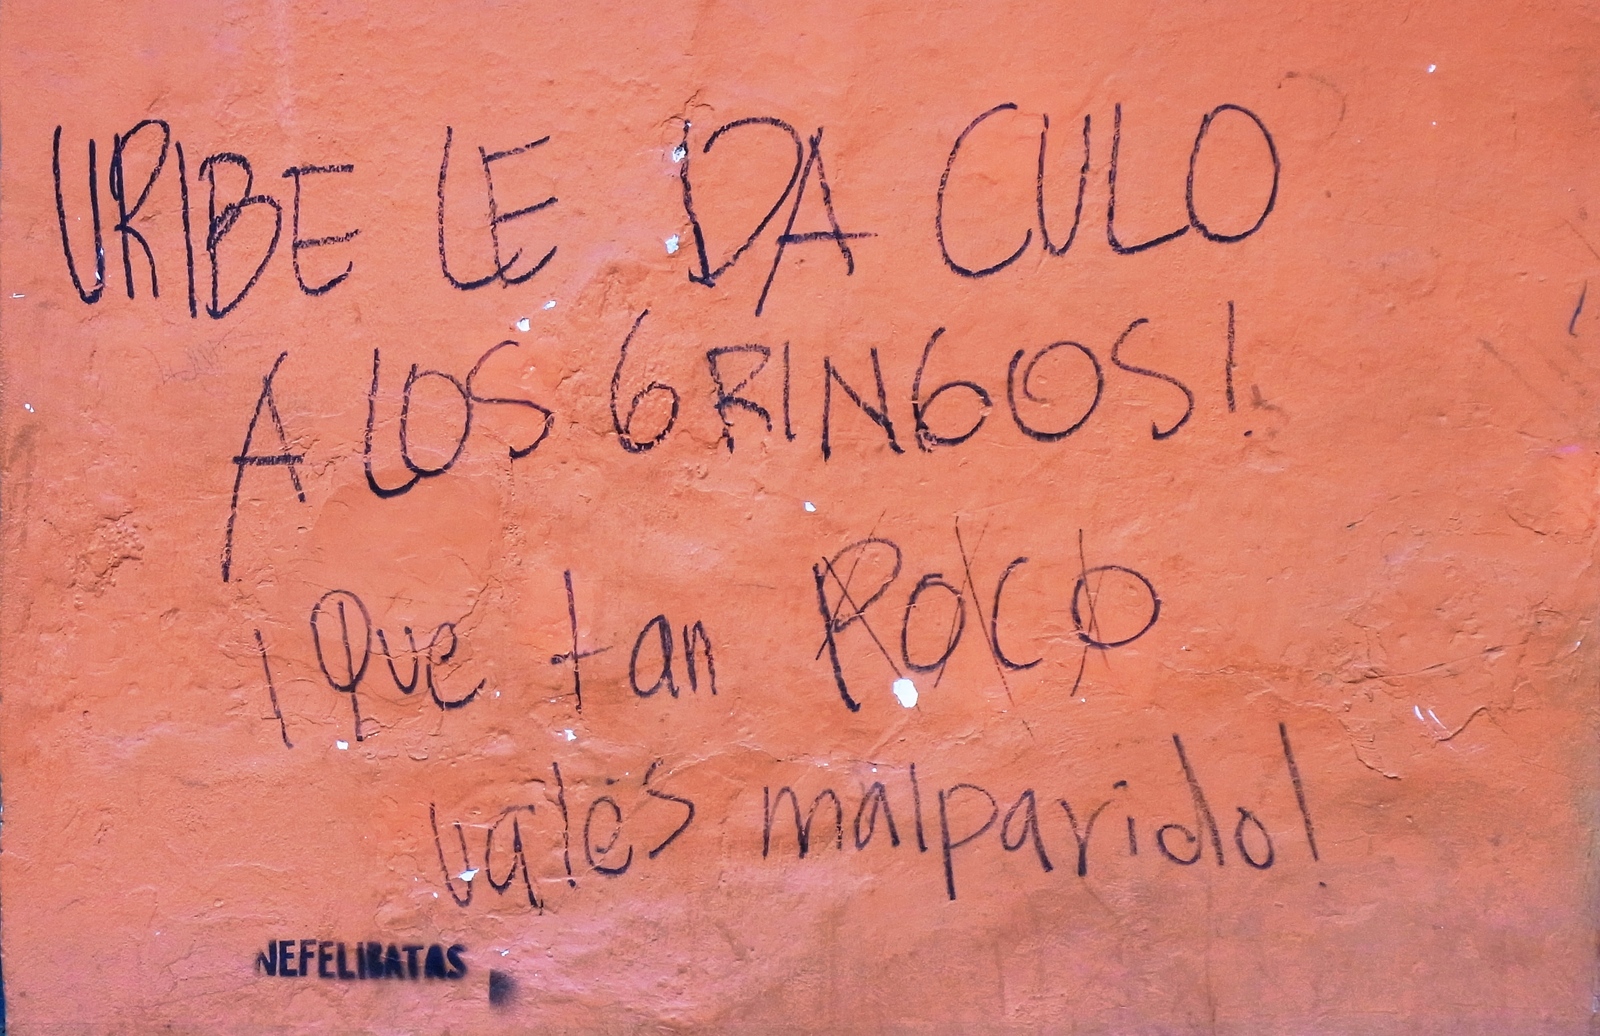 URIBE LE DA CULO
A LOS GRINGOS!
¡Que tan POCO
valés malparido!
NEFELIBATAS